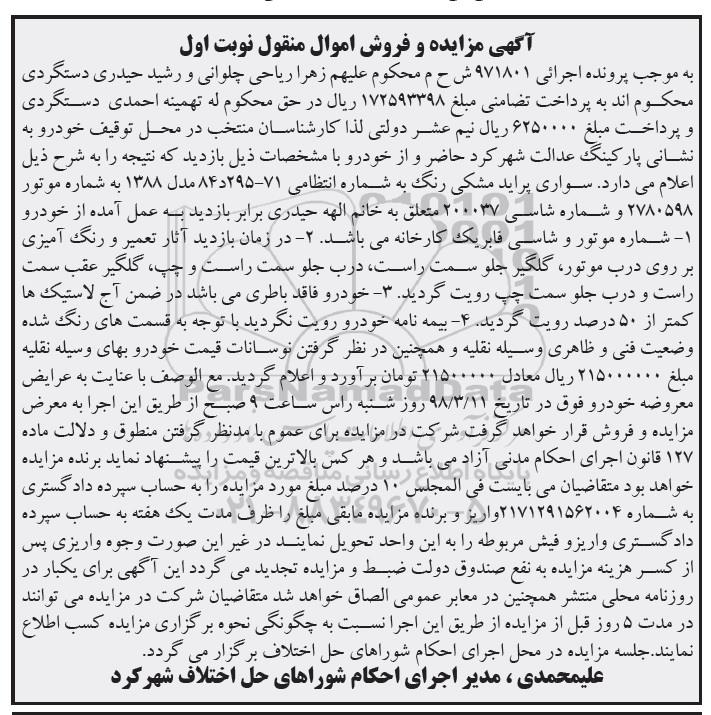 آگهی مزایده و فروش اموال منقول نوبت اول
به موجب پرونده اجرائی ۹۷۱۸۰۱ ش ح م محکوم علیهم زهرا ریاحی چلوانی و رشید حیدری دستگردی
محکوم اند به پرداخت تضامنی مبلغ ۱۷۲۵۹۳۳۹۸ ریال در حق محکوم له تهمینه احمدی دستگردی
و پرداخت مبلغ ۶۲۵۰۰۰۰ ریال نیم عشر دولتی لذا کارشناسان منتخب در محل توقیف خودرو به
نشانی پارکینگ عدالت شهرکرد حاضر و از خودرو با مشخصات ذیل بازدید که نتیجه را به شرح ذیل
اعلام می دارد. سواری پراید مشکی رنگ به شماره انتظامی ۷۱-۲۹۵د۸۴ مدل ۱۳۸۸ به شماره موتور
۲۷۸۰۵۹۸ و شماره شاسی ۲۰۰۰۳۷ متعلق به خانم الهه حیدری برابر بازدید به عمل آمده از خودرو
۱- شماره موتور و شاسی فابریک کارخانه می باشد. ۲- در زمان بازدید آثار تعمیر و رنگ آمیزی
بر روی درب موتور، گلگیر جلو سمت راست، درب جلو سمت راست و چپ، گلگیر عقب سمت
راست و درب جلو سمت چپ رویت گردید. ۳- خودرو فاقد باطری می باشد در ضمن آج لاستیک ها
کمتر از ۵۰ درصد رویت گردید. ۴- بیمه نامه خودرو رویت نگردید با توجه به قسمت های رنگ شده
وضعیت فنی و ظاهری وسیله نقلیه و همچنین در نظر گرفتن نوسانات قیمت خودرو بهای وسیله نقلیه
مبلغ ۲۱۵۰۰۰۰۰۰ ریال معادل ۲۱۵۰۰۰۰۰ تومان برآورد و اعلام گردید. مع الوصف با عنایت به عرایض
معروضه خودرو فوق در تاریخ ۹۸/۳/۱۱ روز شنبه راس ساعت ۹ صبح از طریق این اجرا به معرض
مزایده و فروش قرار خواهد گرفت شرکت در مزایده برای عموم با مدنظر گرفتن منطوق و دلالت ماده
۱۲۷ قانون اجرای احکام مدنی آزاد می باشد و هر کس بالاترین قیمت را پیشنهاد نماید برنده مزایده
خواهد بود متقاضیان می بایست فی المجلس ۱۰ درصد مبلغ مورد مزایده را به حساب سپرده دادگستری
به شماره ۲۱۷۱۲۹۱۵۶۲۰۰۴واریز و برنده مزایده مابقی مبلغ را ظرف مدت یک هفته به حساب سپرده
دادگستری واریزو فیش مربوطه را به این واحد تحویل نمایند در غیر این صورت وجوه واریزی پس
از کسر هزینه مزایده به نفع صندوق دولت ضبط و مزایده تجدید می گردد این آگهی برای یکبار در
روزنامه محلی منتشر همچنین در معابر عمومی الصاق خواهد شد متقاضیان شرکت در مزایده می توانند
در مدت ۵ روز قبل از مزایده از طریق این اجرا نسبت به چگونگی نحوه برگزاری مزایده کسب اطلاع
نمایند.جلسه مزایده در محل اجرای احکام شوراهای حل اختلاف برگزار می گردد.
علیمحمدی ، مدیر اجرای احکام شوراهای حل اختلاف شهرکرد
ParsNamadData
پایگاه اطلاع رسانی مناقصه و مزایده
۰۲۱-۸۸۳۴۹۶۷۰-۵